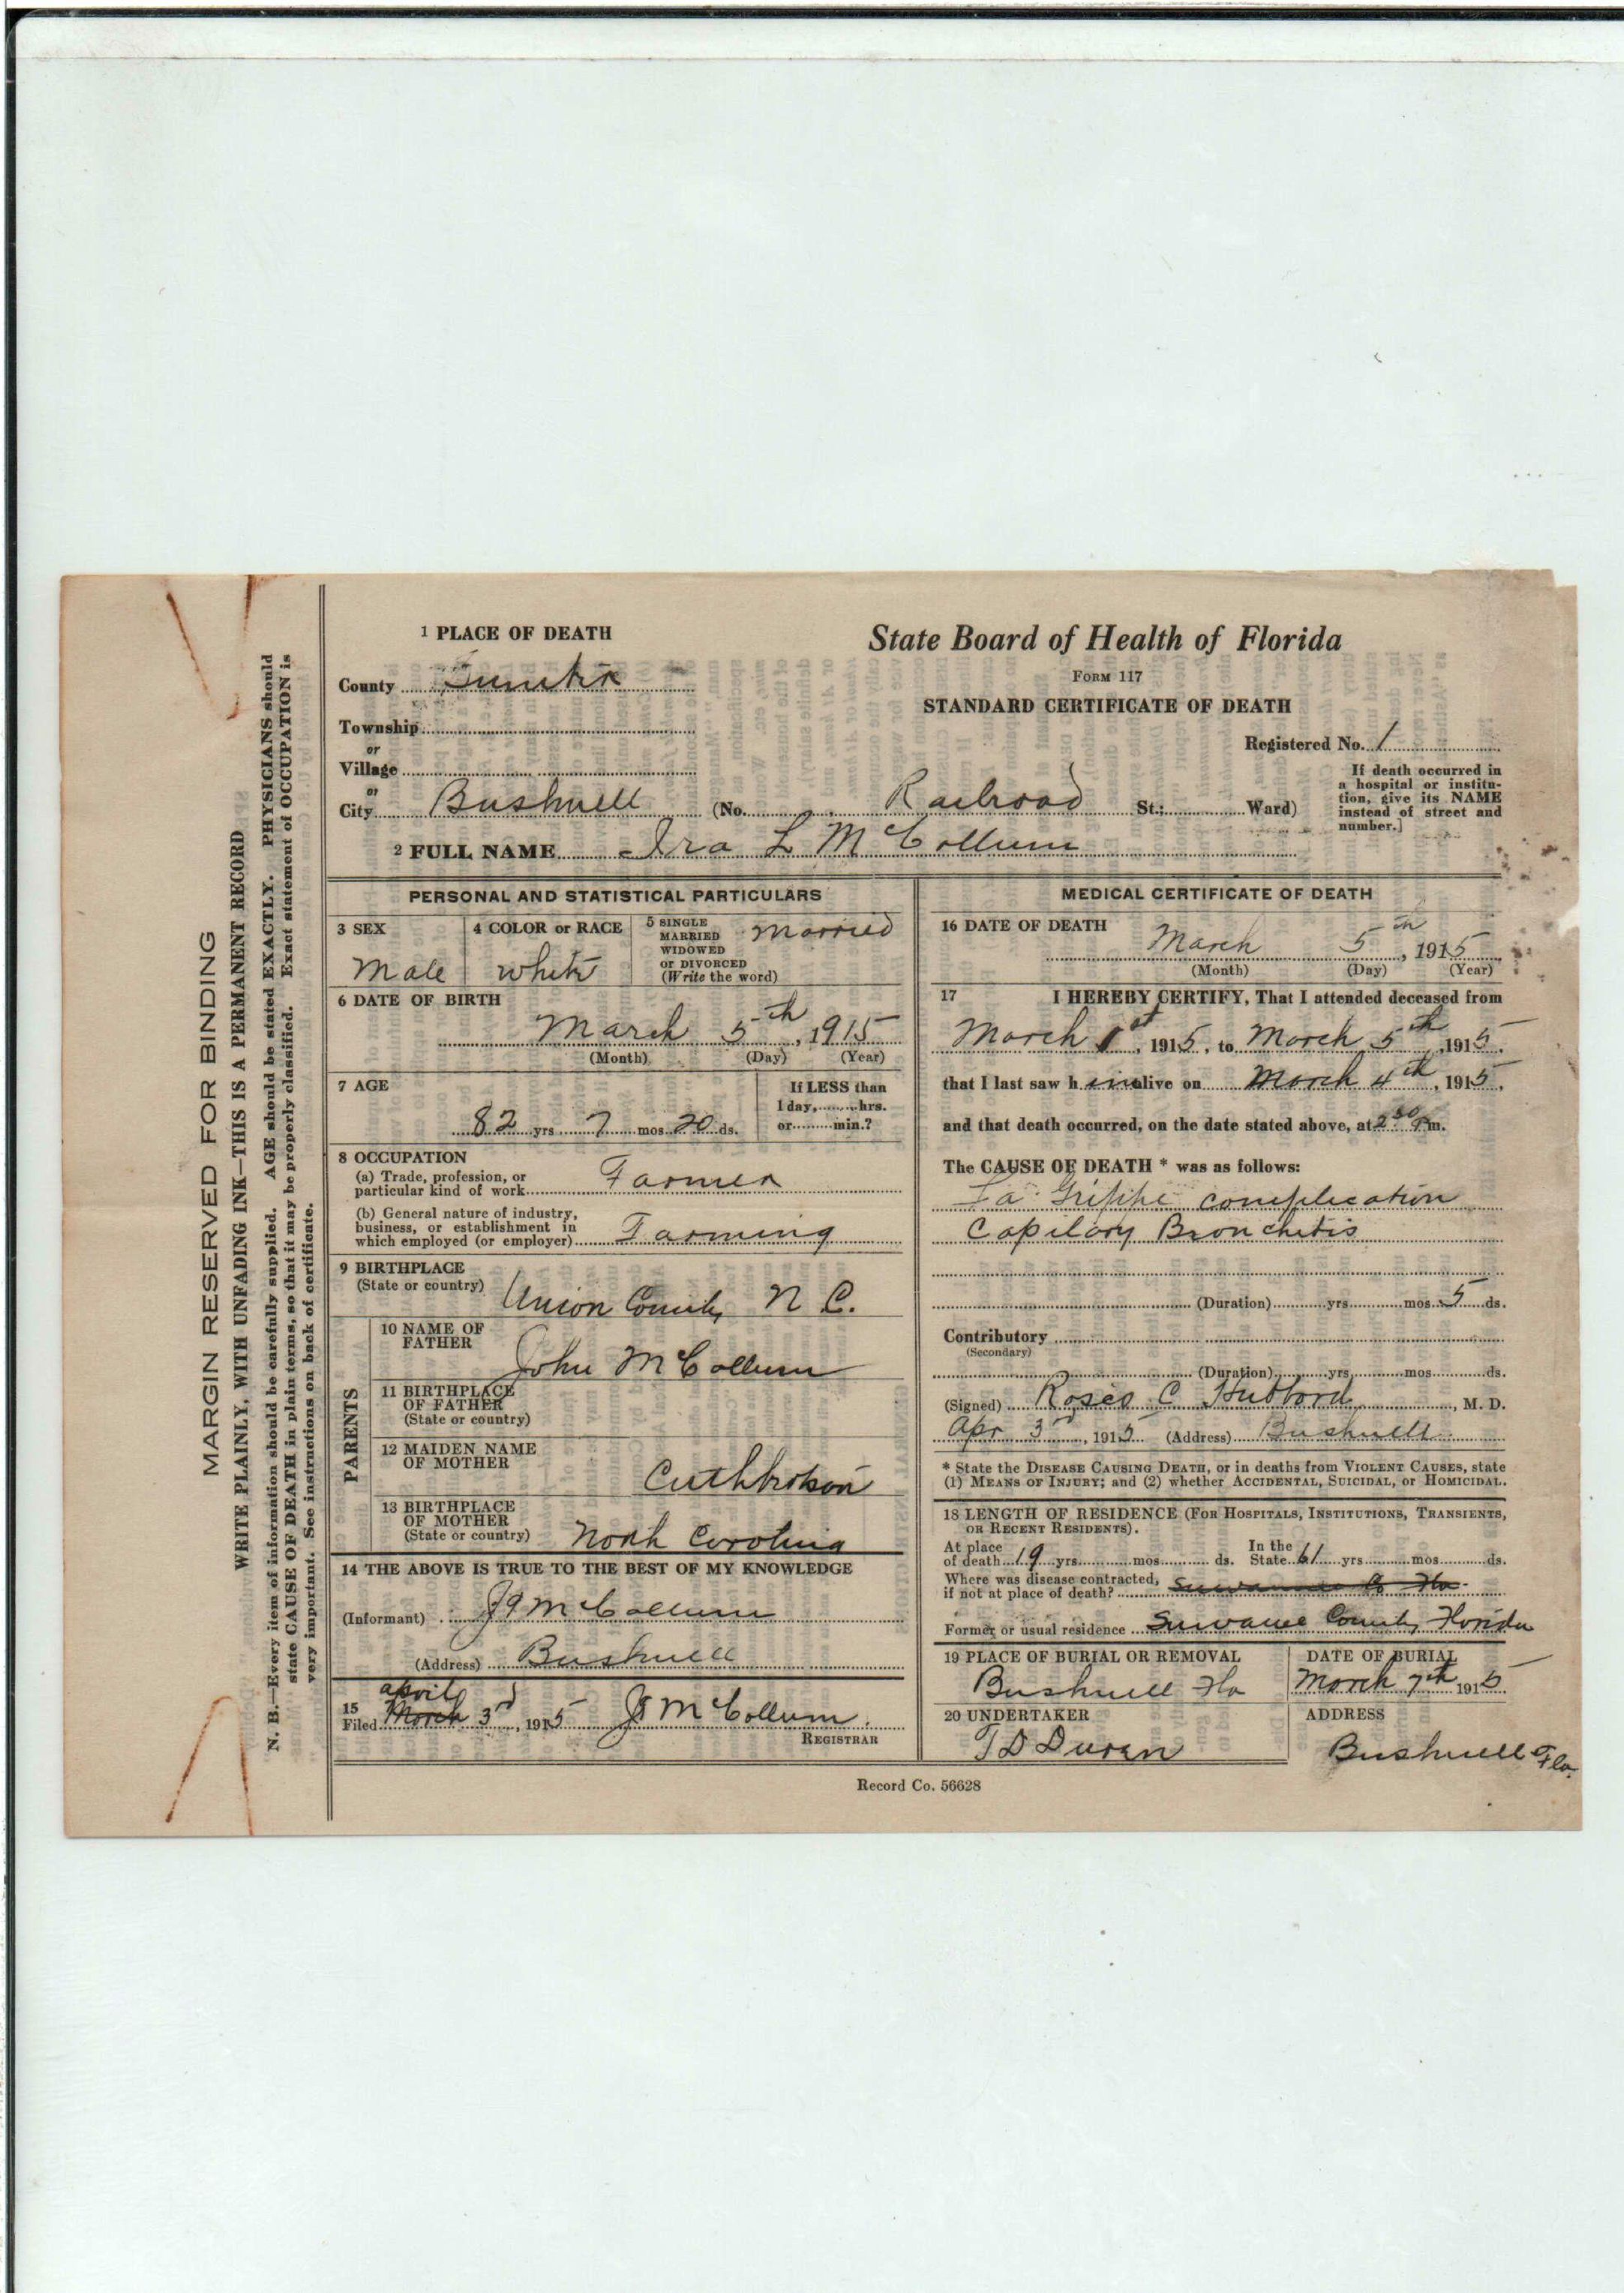 MARGIN RESERVED FOR BINDING
WRITE PLAINLY, WITH UNFADING INK—THIS IS A PERMANENT RECORD
N. B.—Every item of information should be carefully supplied. AGE should be stated EXACTLY. PHYSICIANS should
state CAUSE OF DEATH in plain terms, so that it may be properly classified. Exact statement of OCCUPATION is
very important. See instructions on back of certificate.
1 PLACE OF DEATH
County Sumter
Township
or
Village
or
City Bushnell (No. Railroad St.; Ward)
State Board of Health of Florida
FORM 117
STANDARD CERTIFICATE OF DEATH
Registered No. 1
If death occurred in
a hospital or institu-
tion, give its NAME
instead of street and
number.]
2 FULL NAME Ira L McCollum
PERSONAL AND STATISTICAL PARTICULARS
3 SEX
Male
4 COLOR or RACE
White
5 SINGLE
MARRIED
WIDOWED
or DIVORCED
(Write the word)
Married
6 DATE OF BIRTH
March 5th, 1915
(Month) (Day) (Year)
7 AGE
82 yrs 7 mos 20 ds.
If LESS than
1 day, hrs.
or min.?
8 OCCUPATION
(a) Trade, profession, or
particular kind of work Farmer
(b) General nature of industry,
business, or establishment in
which employed (or employer) Farming
9 BIRTHPLACE
(State or country) Union County N C.
PARENTS
10 NAME OF
FATHER
John McCollum
11 BIRTHPLACE
OF FATHER
(State or country)
12 MAIDEN NAME
OF MOTHER
Cuthbertson
13 BIRTHPLACE
OF MOTHER
(State or country) North Carolina
14 THE ABOVE IS TRUE TO THE BEST OF MY KNOWLEDGE
(Informant) McCollum
(Address) Bushnell
15
April
Filed March 3rd, 1915 McCollum
REGISTRAR
MEDICAL CERTIFICATE OF DEATH
16 DATE OF DEATH
March 5th, 1915
(Month) (Day) (Year)
17 I HEREBY CERTIFY, That I attended deceased from
March 1st, 1915, to March 5th, 1915,
that I last saw h im alive on March 4th, 1915,
and that death occurred, on the date stated above, at 2 30 P m.
The CAUSE OF DEATH * was as follows:
La Grippe complication
Capilary Bronchitis
(Duration) yrs mos 5 ds.
Contributory
(Secondary)
(Duration) yrs mos ds.
(Signed) Rosco C Hubbard, M. D.
Apr 3rd, 1915 (Address) Bushnell
* State the DISEASE CAUSING DEATH, or in deaths from VIOLENT CAUSES, state
(1) MEANS OF INJURY; and (2) whether ACCIDENTAL, SUICIDAL, or HOMICIDAL.
18 LENGTH OF RESIDENCE (FOR HOSPITALS, INSTITUTIONS, TRANSIENTS,
OR RECENT RESIDENTS).
At place
of death 19 yrs mos ds. In the
State 61 yrs mos ds.
Where was disease contracted,
if not at place of death? Suwannee Co Fla.
Former or usual residence Suwanee County Florida
19 PLACE OF BURIAL OR REMOVAL
Bushnell Fla
DATE OF BURIAL
March 7th 1915
20 UNDERTAKER
T D Duren
ADDRESS
Bushnell Fla.
Record Co. 56628